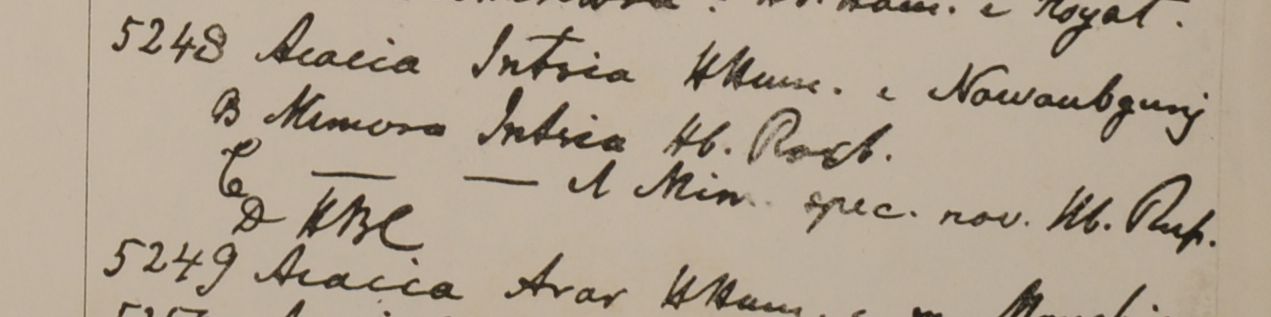 Hb. Ham. e Royat.
5248 Acacia Intsia HHam. e Nowaubgunj
B Mimosa Intsia Hb. Roxb.
C — — A Mim. spec. nov. Hb. Rup.
D HBC
5249 Acacia Arar HHam. e